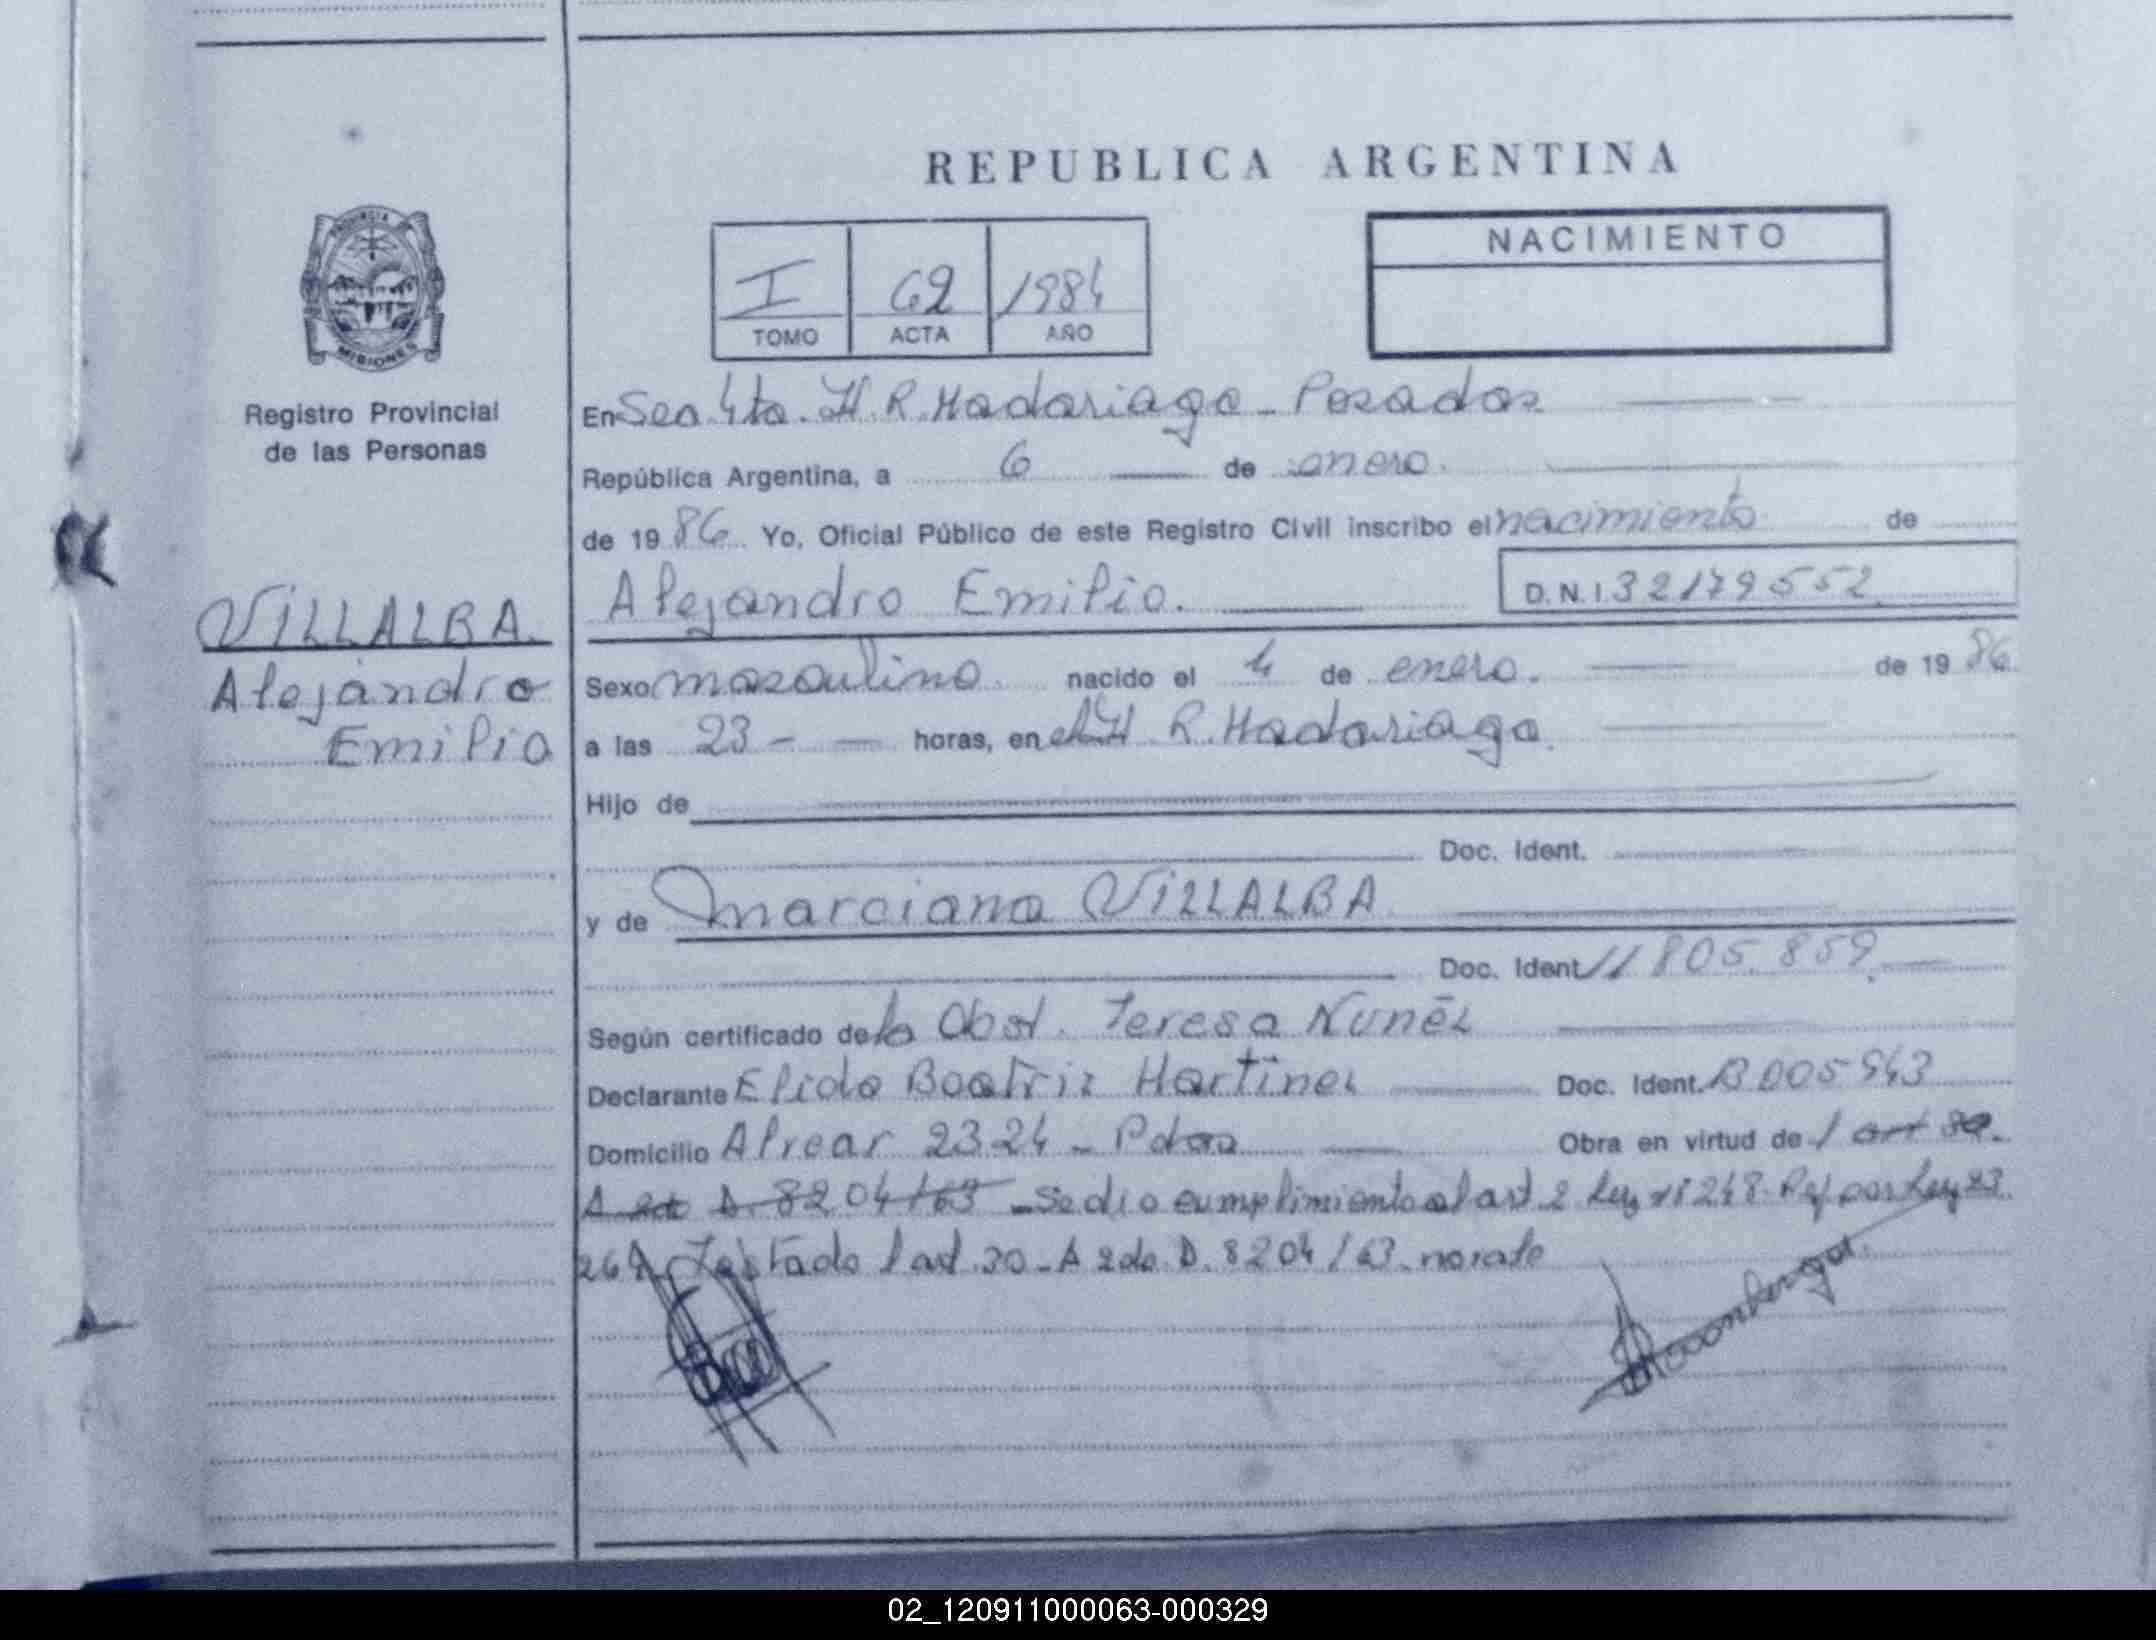 REPUBLICA ARGENTINA
PROVINCIA
MISIONES
Registro Provincial
de las Personas
I 62
TOMO ACTA AÑO
NACIMIENTO
En Sec 4ta. H. R. Madariaga - Posadas
República Argentina, a 6 de enero.
de 19 86. Yo, Oficial Público de este Registro Civil inscribo el nacimiento de
Alejandro Emilio.
D.N.I 32179552
VILLALBA.
Alejandro
Emilio
Sexo masculino nacido el 4 de enero. de 19 86
a las 23 - horas, en el H R. Madariaga.
Hijo de
Doc. Ident.
y de Marciana VILLALBA
Doc. Ident 11 805.859.
Según certificado de la Obst. Teresa Nuñez
Declarante Elida Beatriz Martinez Doc. Ident.
Domicilio Alvear 2324 - Pdas Obra en virtud de l art 30.
A 2do D. 8204/63 - Se dio cumplimiento al art 2 Ley 18248. Ref por Ley 23
264 Testado l art. 30 - A 2do. D. 8204/63. no vale
02_120911000063-000329